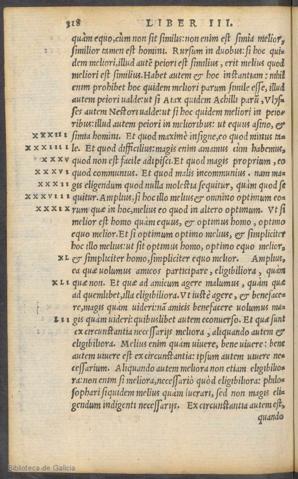 318 LIBER III.
quàm equo, cùm non sit similis: non enim est simia melior,
similior tamen est homini. Rursum in duobus: si hoc qui-
dem meliori, illud autē peiori est similius, erit melius quod
meliori est similius. Habet autem & hoc instantiam: nihil
enim prohibet hoc quidem meliori parum simile esse, illud
autem peiori valde: ut si Aiax quidem Achilli parū, Vlys-
ses autem Nestori valde: ut si hoc quidem meliori in peio
ribus: illud autem peiori in melioribus: ut equus asino, &
XXXIII simia homini. Et quod maximè insigne, eo quod minus ta-
XXXIIII le. Et quod difficilius: magis enim amamus cùm habemus,
XXXV quod non est facile adipisci. Et quod magis proprium, eo
XXXVI quod communius. Et quod malis incommunius. nam ma-
XXXVII gis eligendum quod nulla molestia sequitur, quàm quod se
XXXVIII quitur. Amplius, si hoc illo melius & omnino optimum eo-
XXXIX rum quæ in hoc, melius eo quod in altero optimum. Vt si
melior est homo quàm equus, & optimus homo, optimo
equo melior. Et si optimum optimo melius, & simpliciter
hoc illo melius: ut sit optimus homo, optimo equo melior,
XL & simpliciter homo, simpliciter equo melior. Amplius,
ea quæ volumus amicos participare, eligibiliora, quàm
XLI quæ non. Et quæ ad amicum agere malumus, quàm quæ
ad quemlibet, illa eligibiliora. Vt iustè agere, & beneface-
re, magis quàm videri: nā amicis benefacere volumus ma-
LII gis quàm videri: quibuslibet autem econuerso. Et quæ sunt
ex circunstantia necessarijs meliora, aliquando autem &
eligibiliora. Melius enim quàm uiuere, bene uiuere: bene
autem uiuere est ex circunstantia: ipsum autem uiuere ne-
cessarium. Aliquando autem meliora non etiam eligibilio
ra: non enim si meliora, necessariò quòd eligibiliora: philo-
sophari siquidem melius quàm lucrari, sed non magis eli-
gendum indigenti necessarijs. Ex circunstantia autem est,
quando
Biblioteca de Galicia